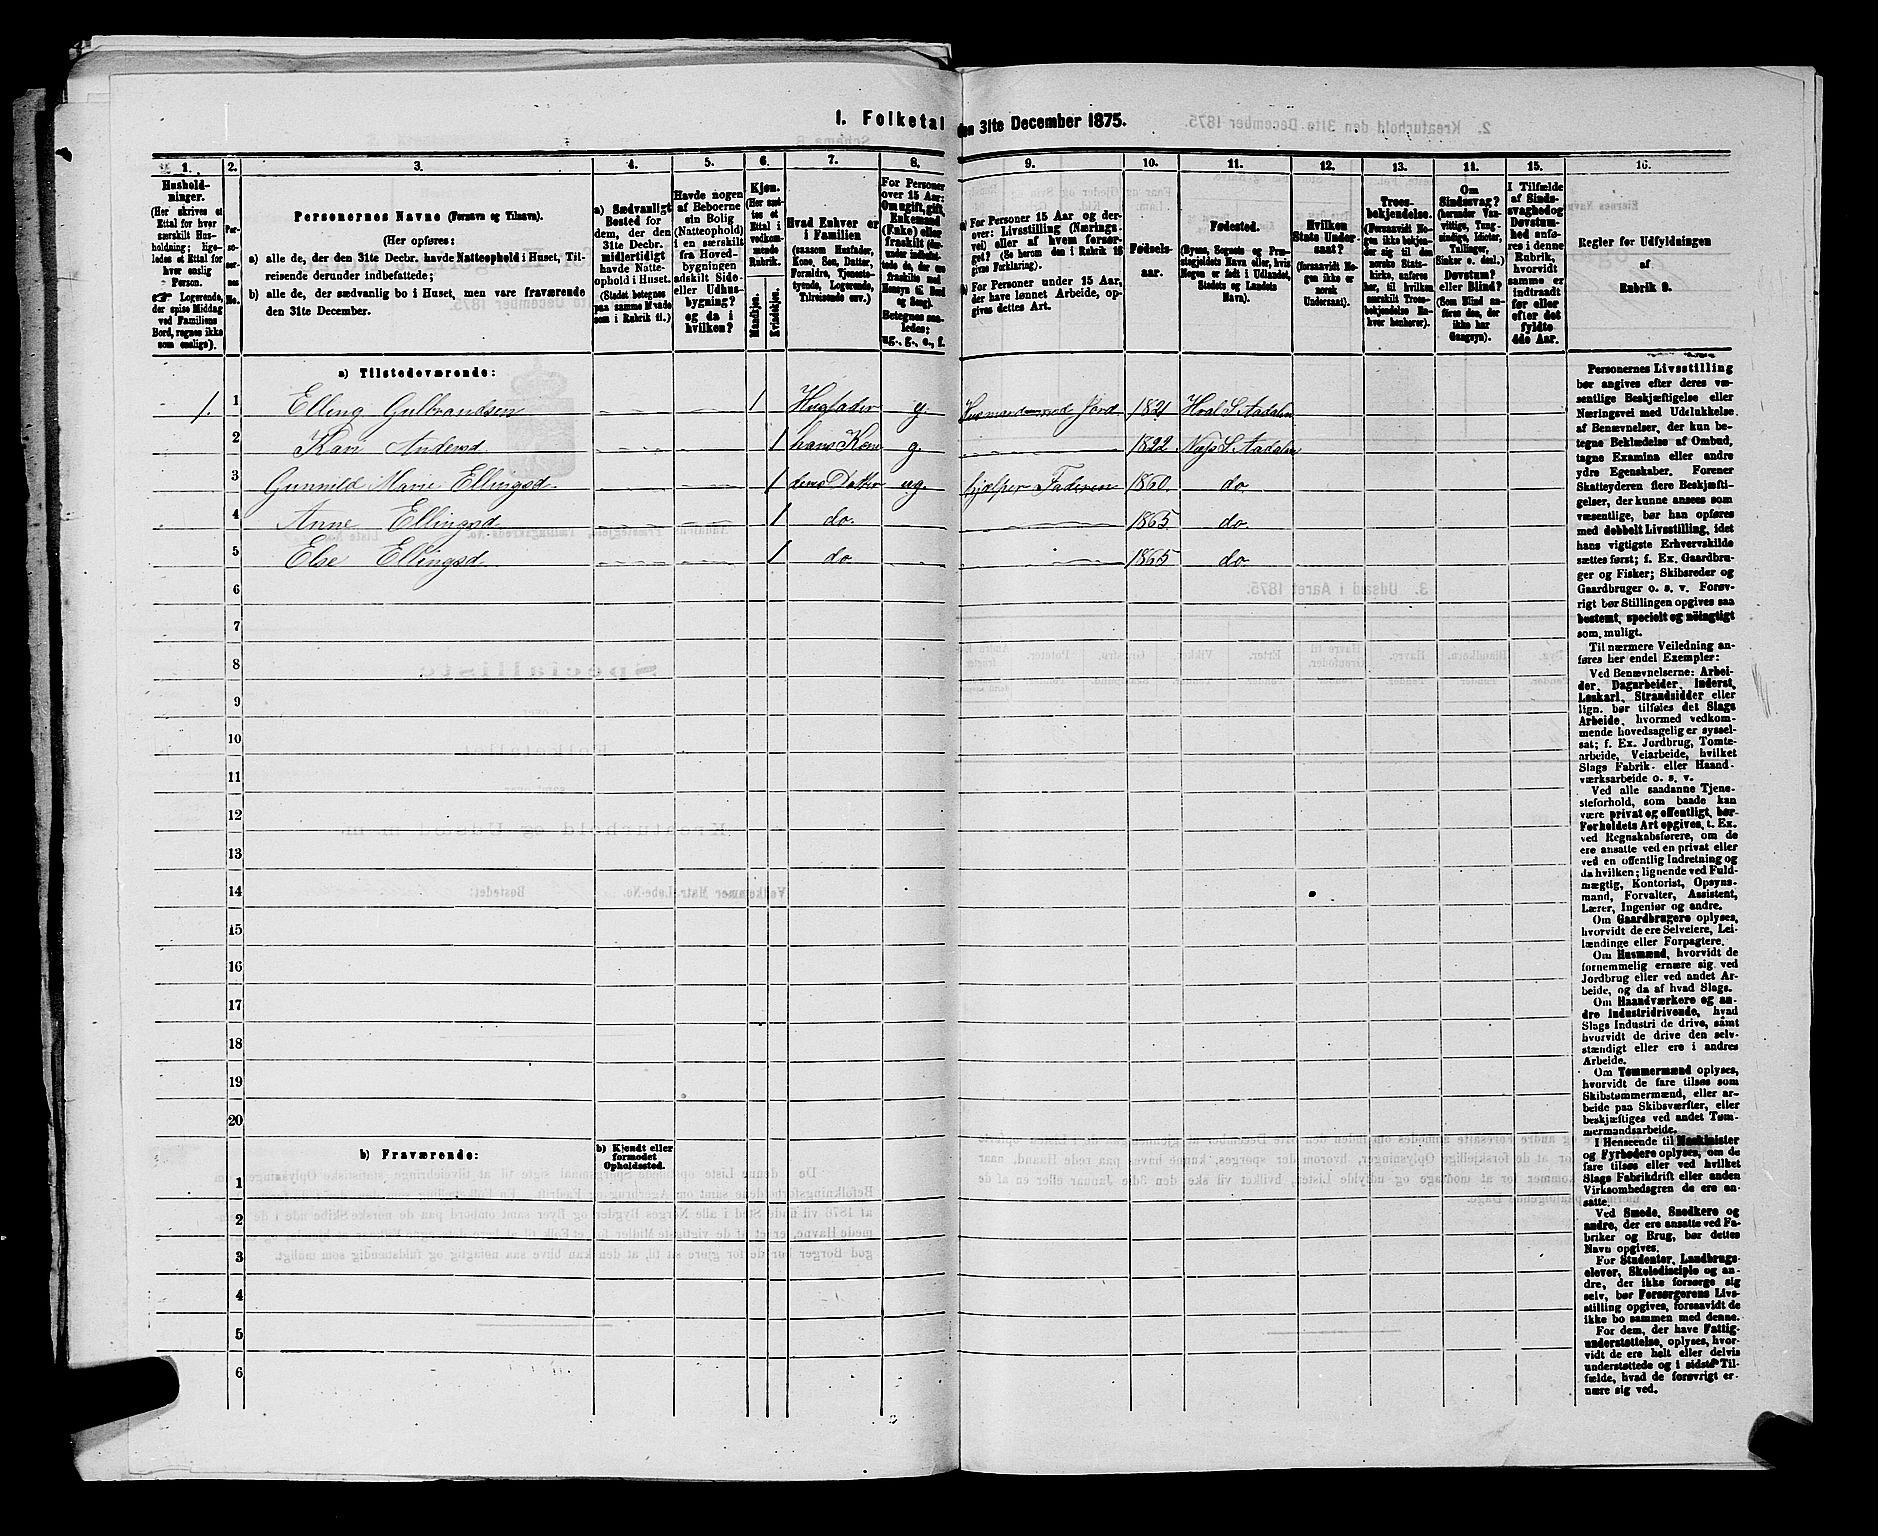 1. Folketal den 31te December 1875.
1.
2.
3.
4.
5.
6.
7.
8.
9.
10.
11.
12.
13.
14.
15.
16.
Hushold-
ninger.
(Her skrives et
Ettal for hver
særskilt Hus-
holdning; lige-
ledes et Ettal for
hver enslig
Person.
☞ Logerende,
der spise Middag
ved Familiens
Bord, regnes ikke
som enslige).
Per-
so-
ner-
nes
No.
Personernes Navne (Fornavn og Tilnavn).
(Her opføres:
a) alle de, der den 31te Decbr. havde Natteophold i Huset, Til-
reisende derunder indbefattede;
b) alle de, der sædvanlig bo i Huset, men vare fraværende
den 31te December.
a) Sædvanligt
Bosted for
dem, der den
31te Decbr.
midlertidigt
havde Natte-
ophold i Huset.
(Stedet betegnes
paa samme Maade
som i Rubrik 11.)
Havde nogen
af Beboerne
sin Bolig
(Natteophold)
i en særskilt
fra Hoved-
bygningen
adskilt Side-
eller Udhus-
bygning?
og da i
hvilken?
Kjøn.
(Her sæt-
tes et
Ettal i
vedkom-
mende
Rubrik.
Mandkjøn.
Kvindekjøn.
Hvad Enhver er
i Familien
(saasom Husfader,
Kone, Søn, Datter,
Forældre, Tjeneste-
tyende, Logerende,
Tilreisende osv.)
For Personer
over 15 Aar:
Om ugift, gift,
Enkemand
(Enke) eller
fraskilt
Betegnes saa-
ledes:
ug., g., e., f.
a) For Personer 15 Aar og der-
over: Livsstilling (Nærings-
vei) eller af hvem forsør-
get? (Se herom den i Rubrik 16
givne Forklaring).
b) For Personer under 15 Aar,
der have lønnet Arbeide, op-
gives dettes Art.
Fødsels-
aar.
Fødested.
(Byens, Sognets og Præ-
stegjeldets Navn eller, hvis
Nogen er født i Udlandet,
Stedets og Landets
Navn).
Hvilken
Stats Under-
saat?
(forsaavidt No-
gen ikke er
norsk
Undersaat).
Troes-
bekjendelse.
(Forsaavidt No-
gen ikke bekjen-
der sig til den
norske Stats-
kirke, anføres
her, til hvilken
særskilt Troes-
bekjendelse En-
hver henhører).
Om
Sindssvag?
(herunder Van-
vittige, Tung-
sindige, Idioter,
Tullinger,
Sinker o. desl.)
Døvstum?
eller Blind?
(Som Blind an-
føres den, der
ikke har
Gangsyn).
I Tilfælde
af Sinds-
svaghed og
Døvstum-
hed anfø-
res i denne
Rubrik,
hvorvidt
samme er
indtraadt
før eller
efter det
fyldte
4de Aar.
Regler for Udfyldningen
af
Rubrik 9.
a) Tilstedeværende:
1. 1 Elling Gulbrandsen 1 Husfader g. Husmand med Jord 1821 Hval S. Aadalen
2 Kari Andersd 1 hans Kone g. 1822 Næs S. Aadalen
3 Gunnild Marie Ellingsd. 1 deres Datter ug. hjælper Faderen 1860 do.
4 Anne Ellingsd 1 do. 1865 do.
5 Else Ellingsd 1 do. 1865 do
6
7
8
9
10
11
12
13
14
15
16
17
18
19
20
b) Fraværende:
b) Kjendt eller
formodet
Opholdssted.
1
2
3
4
5
6
Personernes Livsstilling
bør angives efter deres væ-
sentlige Beskjæftigelse eller
Næringsvei med Udelukkelse
af Benævnelser, der kun be-
tegne Beklædelse af Ombud,
tagne Examina eller andre
ydre Egenskaber. Forener
Skatteyderen flere Beskjæfti-
gelser, der kunne ansees som
væsentlige, bør han opføres
med dobbelt Livsstilling, idet
hans vigtigste Erhvervskilde
sættes først; f. Ex. Gaardbru-
ger og Fisker; Skibsreder og
Gaardbruger o. s. v. Forøv-
rigt bør Stillingen opgives saa
bestemt, specielt og nöiagtigt
som muligt.
Til nærmere Veiledning an-
føres her endel Exempler:
Ved Benævnelserne: Arbei-
der, Dagarbeider, Inderst,
Løskarl, Strandsidder eller
lign. bør tilføies det Slags
Arbeide, hvormed vedkom-
mende hovedsagelig er syssel-
sat; f. Ex. Jordbrug, Tomte-
arbeide, Veiarbeide, hvilket
Slags Fabrik- eller Haand-
værksarbeide o. s. v.
Ved alle saadanne Tjene-
steforhold, som baade kan
være privat og offentligt, bør
Forholdets Art opgives, t. Ex.
ved Regnskabsførere, om de
ere ansatte ved en privat eller
ved en offentlig Indretning og
da hvilken; lignende ved Fuld-
mægtig, Kontorist, Opsyns-
mand, Forvalter, Assistent,
Lærer, Ingeniør og andre.
Om Gaardbrugere oplyses,
hvorvidt de ere Selveiere, Lei-
lændinge eller Forpagtere.
Om Husmænd, hvorvidt de
fornemmelig ernære sig ved
Jordbrug eller ved andet Ar-
beide, og da af hvad Slags.
Om Haandværkere og an-
dre Industridrivende, hvad
Slags Industri de drive, samt
hvorvidt de drive den selv-
stændigt eller ere i andres
Arbeide.
Om Tømmermænd oplyses,
hvorvidt de fare tilsøs som
Skibstømmermænd, eller ar-
beide paa Skibsværfter, eller
beskjæftiges ved andet Tøm-
mermandsarbeide.
I Henseende til Maskinister
og Fyrbødere oplyses, om de
fare tilsøs eller ved hvilket
Slags Fabrikdrift eller anden
Virksomhedsgren de ere an-
satte.
Ved Smede, Snedkere og
andre, der ere ansatte ved Fa-
briker og Brug, bør dettes
Navn opgives.
For Studenter, Landbrugs-
elever, Skoledisciple og an-
dre, der ikke forsørge sig
selv, bør Forsørgerens Livs-
stilling opgives, forsaavidt de
ikke bo sammen med denne.
For dem, der have Fattig-
understøttelse, oplyses, hvor-
vidt de ere helt eller delvis
understøttede og i sidste Til-
fælde, hvad de forøvrigt er-
nære sig ved.